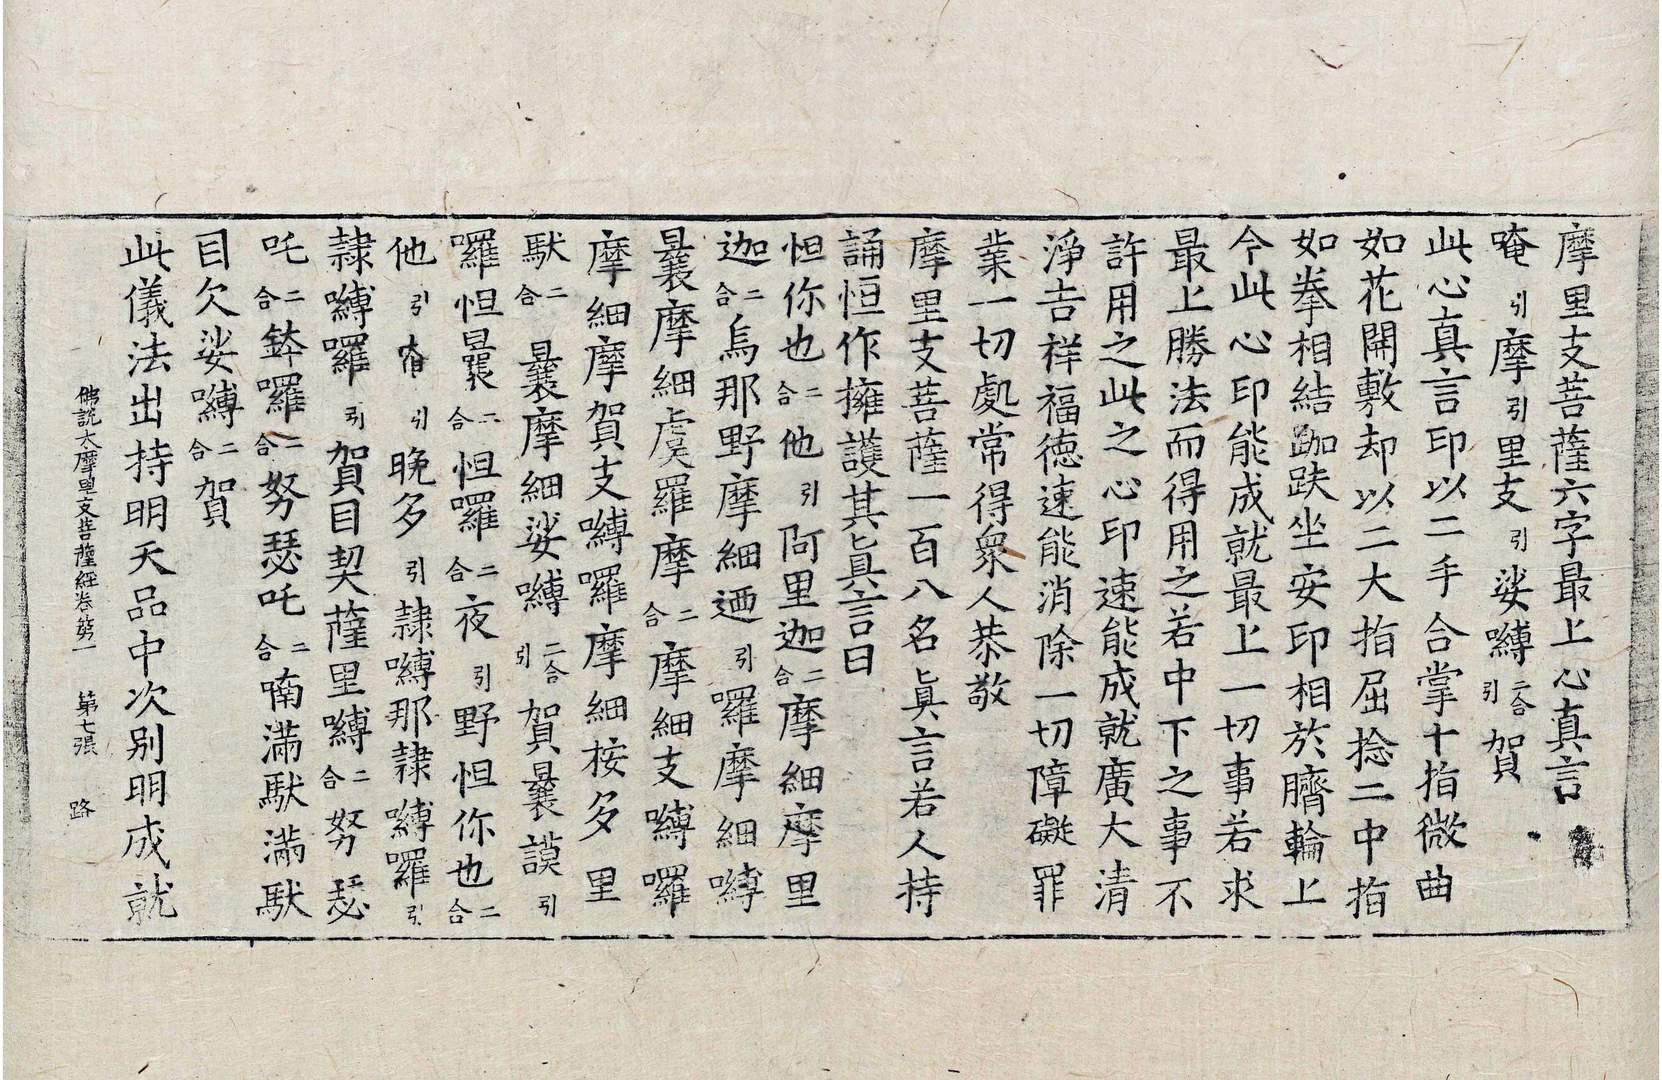 摩里支菩薩六字最上心真言
唵引摩引里支引娑嚩二合引賀
此心真言印以二手合掌十指微曲
如花開敷却以二大指屈捻二中指
如拳相結跏趺坐安印相於臍輪上
今此心印能成就最上一切事若求
最上勝法而得用之若中下之事不
許用之此之心印速能成就廣大清
淨吉祥福德速能消除一切障礙罪
業一切處常得衆人恭敬
摩里支菩薩一百八名眞言若人持
誦恒作擁護其眞言曰
怛你也二合他引阿里迦二合摩細摩里
迦二合烏那野摩細迺引囉摩細嚩
曩摩細虞羅摩二合摩細支嚩囉
摩細摩賀支嚩囉摩細桉多里
馱二合曩摩細娑嚩二合引賀曩謨引
囉怛曩二合怛囉二合夜引野怛你也二合
他引引晚多引隸嚩那隸嚩囉引
隸嚩囉引賀目契薩里嚩二合努瑟
吒二合鉢囉二合努瑟吒二合喃滿馱滿馱
目欠娑嚩二合賀
此儀法出持明天品中次別明成就
佛說大摩里支菩薩經卷第一 第七張 路